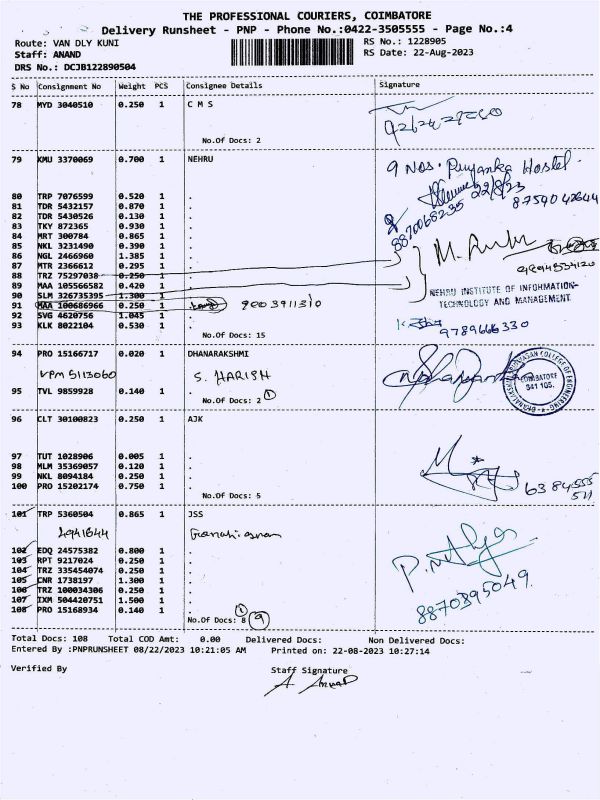 THE PROFESSIONAL COURIERS, COIMBATORE
Delivery Runsheet - PNP - Phone No.:0422-3505555 - Page No.:4
Route: VAN DLY KUNI RS No.: 1228905
Staff: ANAND RS Date: 22-Aug-2023
DRS No.: DCJB122890504
S No Consignment No Weight PCS Consignee Details Signature
78 MYD 3040510 0.250 1 C M S
No.Of Docs: 2
79 KMU 3370069 0.700 1 NEHRU
9 Nos. Priyanka Hostel.
22/8/23
8870068235 8759042644
80 TRP 7076599 0.520 1 .
81 TDR 5432157 0.870 1 .
82 TDR 5430526 0.130 1 .
83 TKY 872365 0.930 1 .
84 MRT 300784 0.865 1 .
85 NKL 3231490 0.390 1 .
86 NGL 2466960 1.385 1 .
87 MTR 2366612 0.295 1 .
88 TRZ 75297038 0.250 1 .
89 MAA 105566582 0.420 1 .
90 SLM 326735395 1.300 1 .
NEHRU INSTITUTE OF INFORMATION
TECHNOLOGY AND MANAGEMENT
91 MAA 100686966 0.250 1 9003911310
92 SVG 4620756 1.045 1 .
93 KLK 8022104 0.530 1 .
9789666330
No.Of Docs: 15
94 PRO 15166717 0.020 1 DHANARAKSHMI
VPM 5113060 S. HARISH
COIMBATORE
641 105.
95 TVL 9859928 0.140 1 .
No.Of Docs: 2 1
96 CLT 30100823 0.250 1 AJK
97 TUT 1028906 0.005 1 .
98 MLM 35369057 0.120 1 .
99 NKL 8094184 0.250 1 .
100 PRO 15202174 0.750 1 .
No.Of Docs: 5
101 TRP 5360504 0.865 1 JSS
102 EDQ 24575382 0.800 1 .
103 RPT 9217024 0.250 1 .
104 TRZ 335454074 0.250 1 .
105 CNR 1738197 1.300 1 .
106 TRZ 100034306 0.250 1 .
107 IXM 504420751 1.500 1 .
108 PRO 15168934 0.140 1 .
8870895049.
No.Of Docs: 8 1 9
Total Docs: 108 Total COD Amt: 0.00 Delivered Docs: Non Delivered Docs:
Entered By :PNPRUNSHEET 08/22/2023 10:21:05 AM Printed on: 22-08-2023 10:27:14
Verified By Staff Signature
A Anand